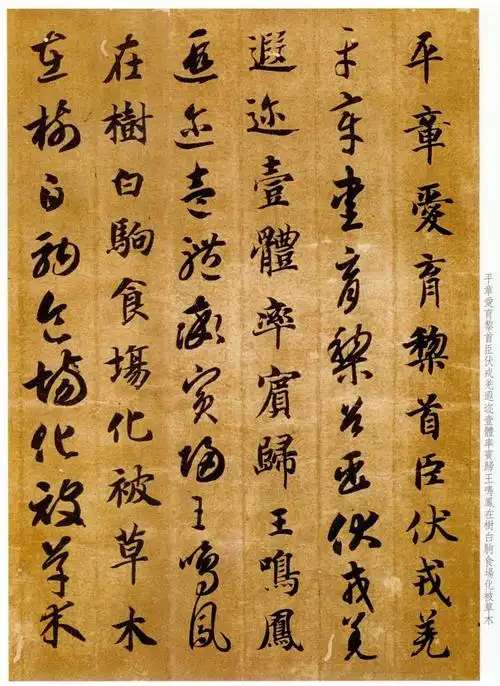 平章愛育黎首臣伏戎羌
平章愛育黎首臣伏戎羌
遐迩壹體率賓歸王鳴鳳
遐迩壹體率賓歸王鳴鳳
在樹白駒食塲化被草木
在樹白駒食場化被草木
平章愛育黎首臣伏戎羌遐迩壹體率賓歸王鳴鳳在樹白駒食場化被草木